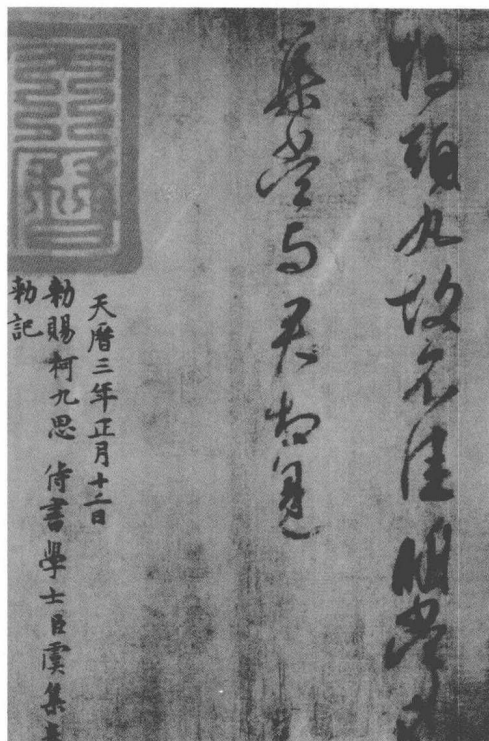 鴨頭丸故不佳明當必
集當与君相見
天曆三年正月十二日
勑賜柯九思 侍書學士臣虞集奉
勑記